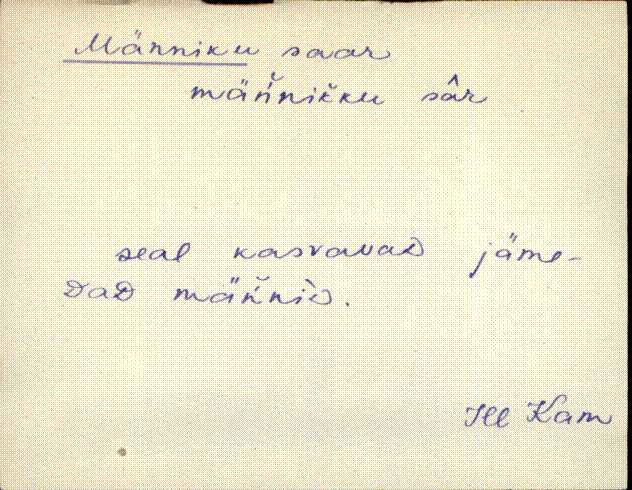 Männiku saar
män̆nik̆ku sâr
seal kasvavad jäme-
dad män̆niD.
Ill Kam